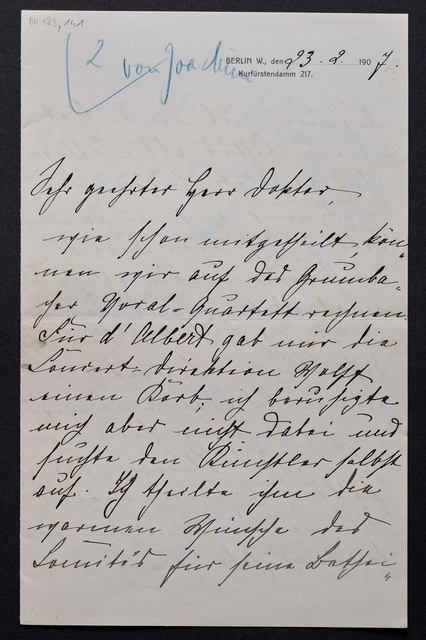 BH 183, 141
2 von Joachim
BERLIN W., den 23. 2. 1907.
Kurfürstendamm 217.
Sehr geehrter Herr Doktor,
wie schon mitgetheilt, kön„
nen wir auf das Grumba„
cher Vocal-Quartett rechnen.
Für d'Albert gab mir die
Concert-Direktion Wolff
einen Korb; ich beruhigte
mich aber nicht dabei und
suchte den Künstler selbst
auf. Ich theilte ihm die
warmen Wünsche des
Comités für seine Bethei„